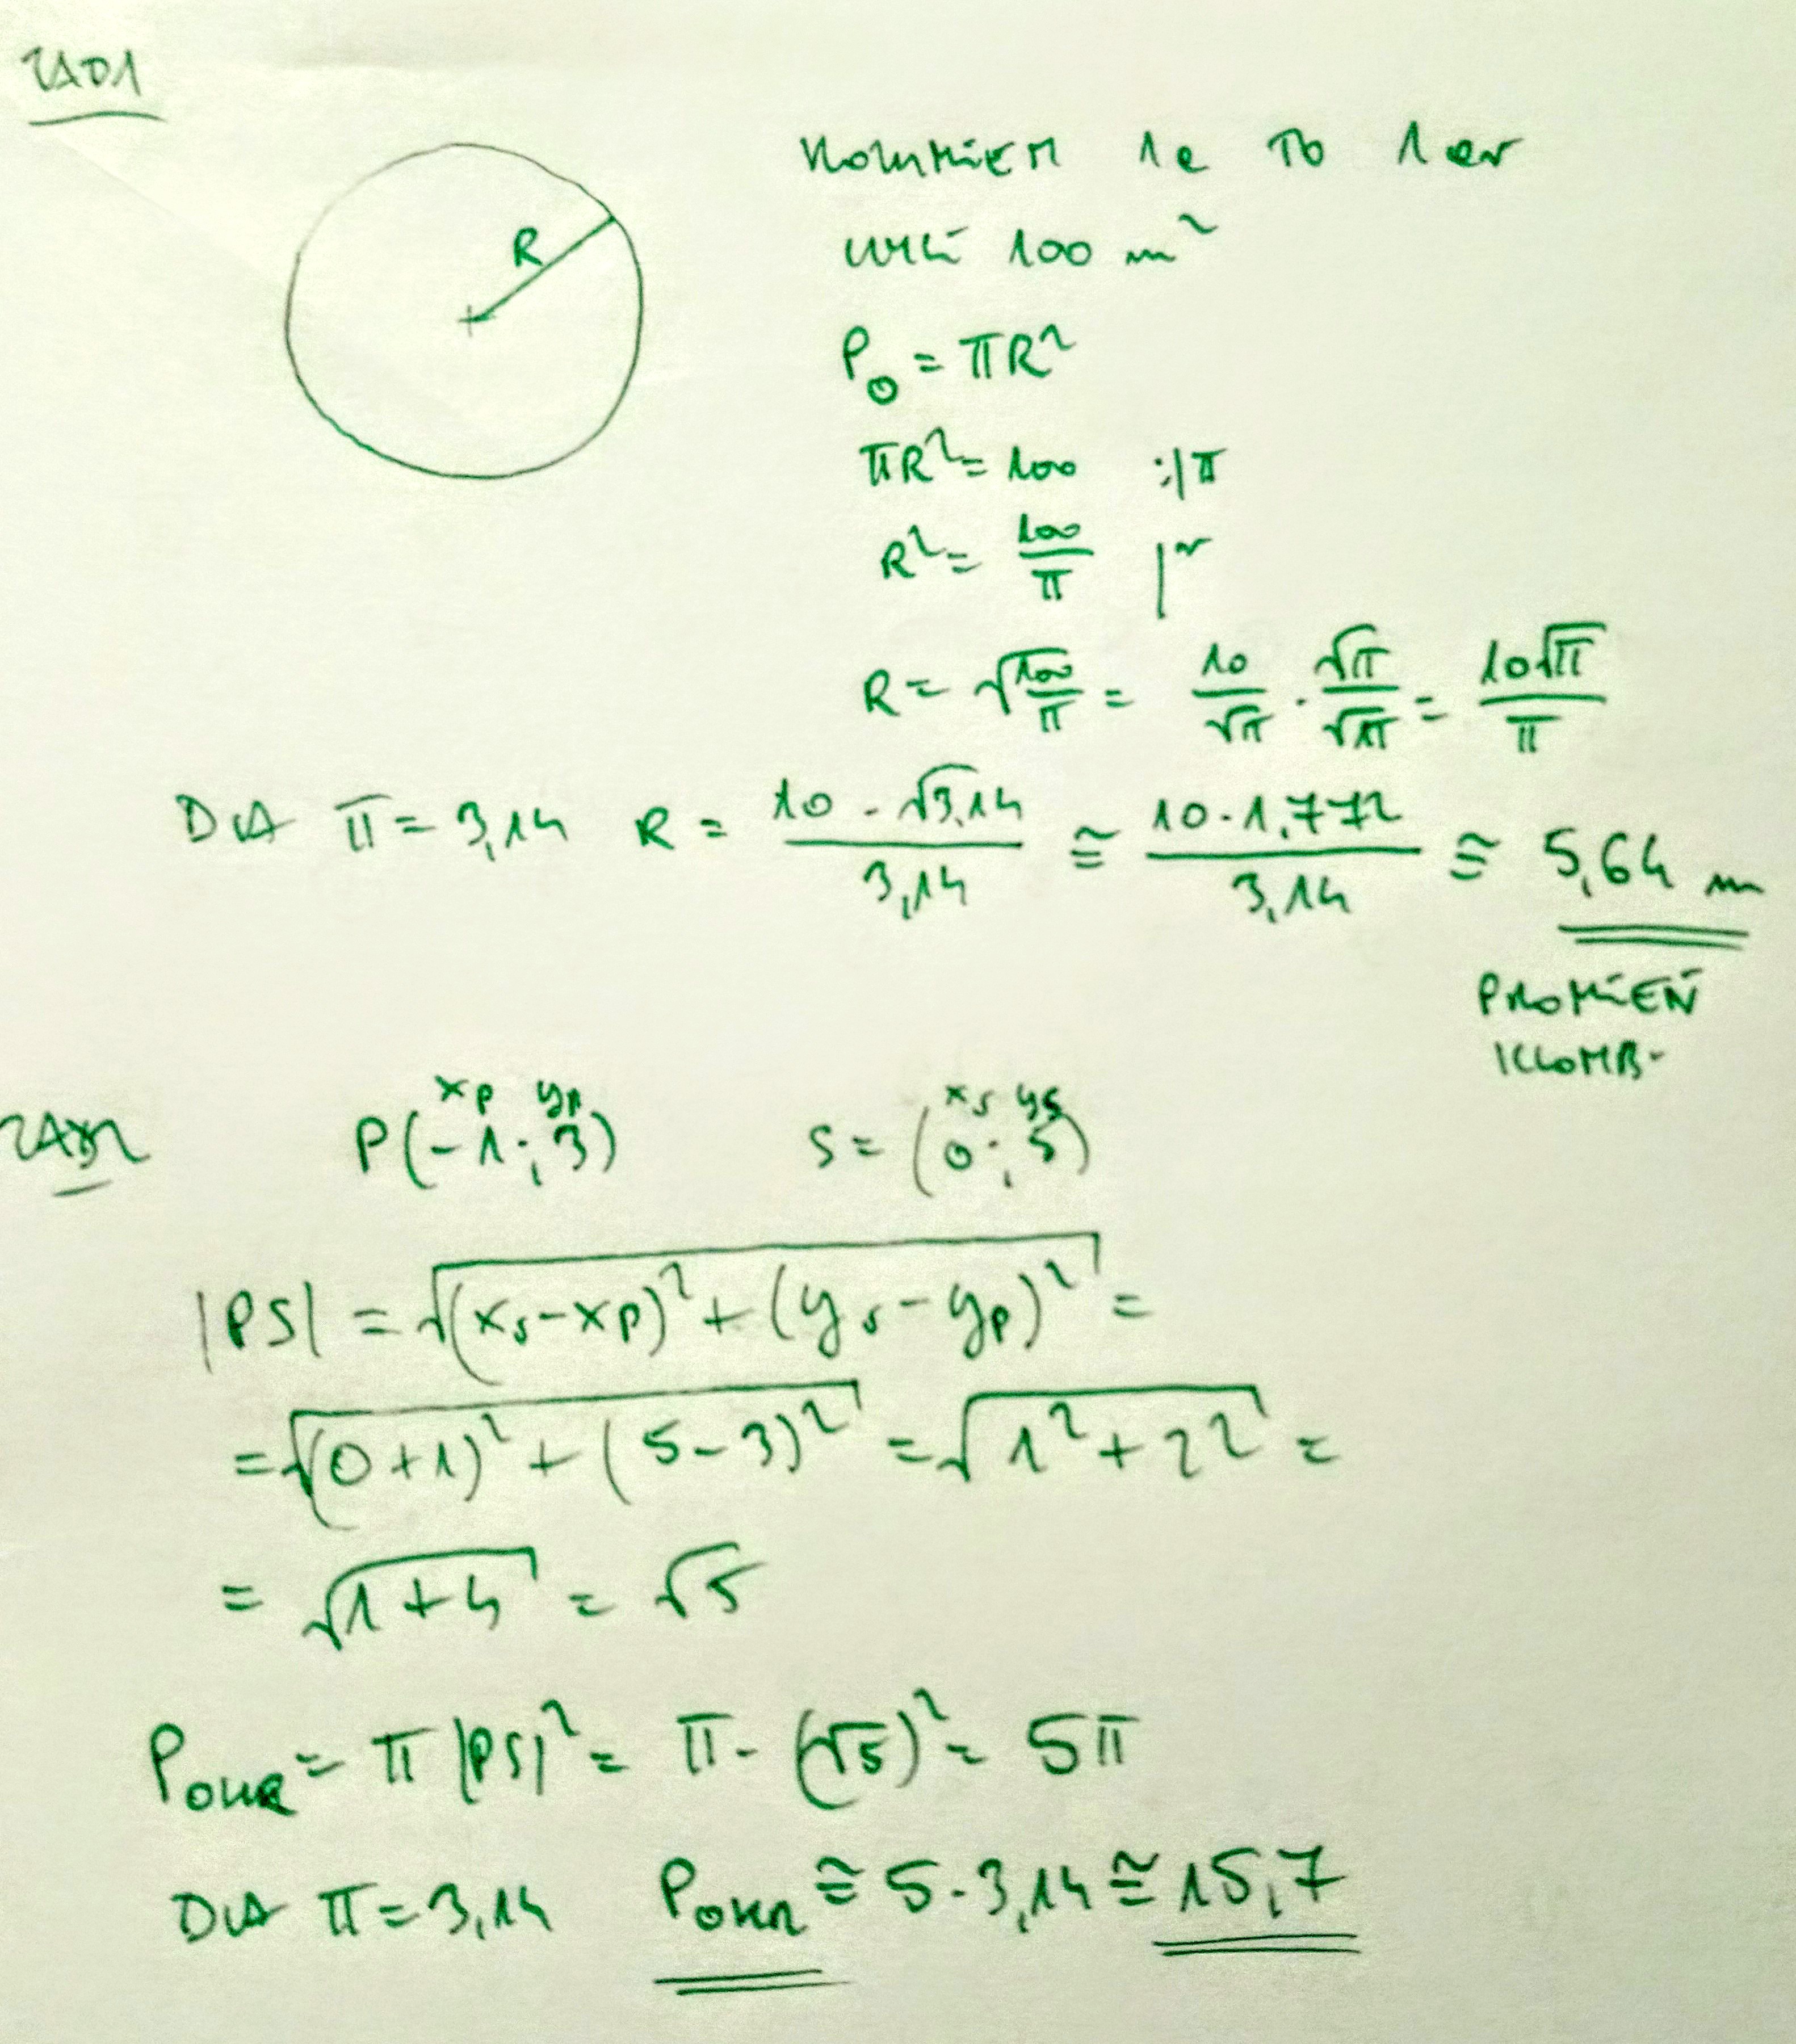 ZAD1
R
ROZUMIEM że to 1 ar
czyli 100 m²
P₀ = πR²
πR² = 100 :|π
R² = 100/π |√
R = √(100/π) = 10/√π · √π/√π = 10√π/π
DLA π = 3,14 R = 10·√3,14/3,14 ≅ 10·1,772/3,14 ≅ 5,64 m
PROMIEŃ
KLOMB.
ZAD2
xp yp xs ys
P(-1; 3) S = (0; 5)
|PS| = √((xs-xp)² + (ys-yp)²) =
= √((0+1)² + (5-3)²) = √(1² + 2²) =
= √(1+4) = √5
Pokr = π|PS|² = π · (√5)² = 5π
DLA π = 3,14 Pokr ≅ 5·3,14 ≅ 15,7